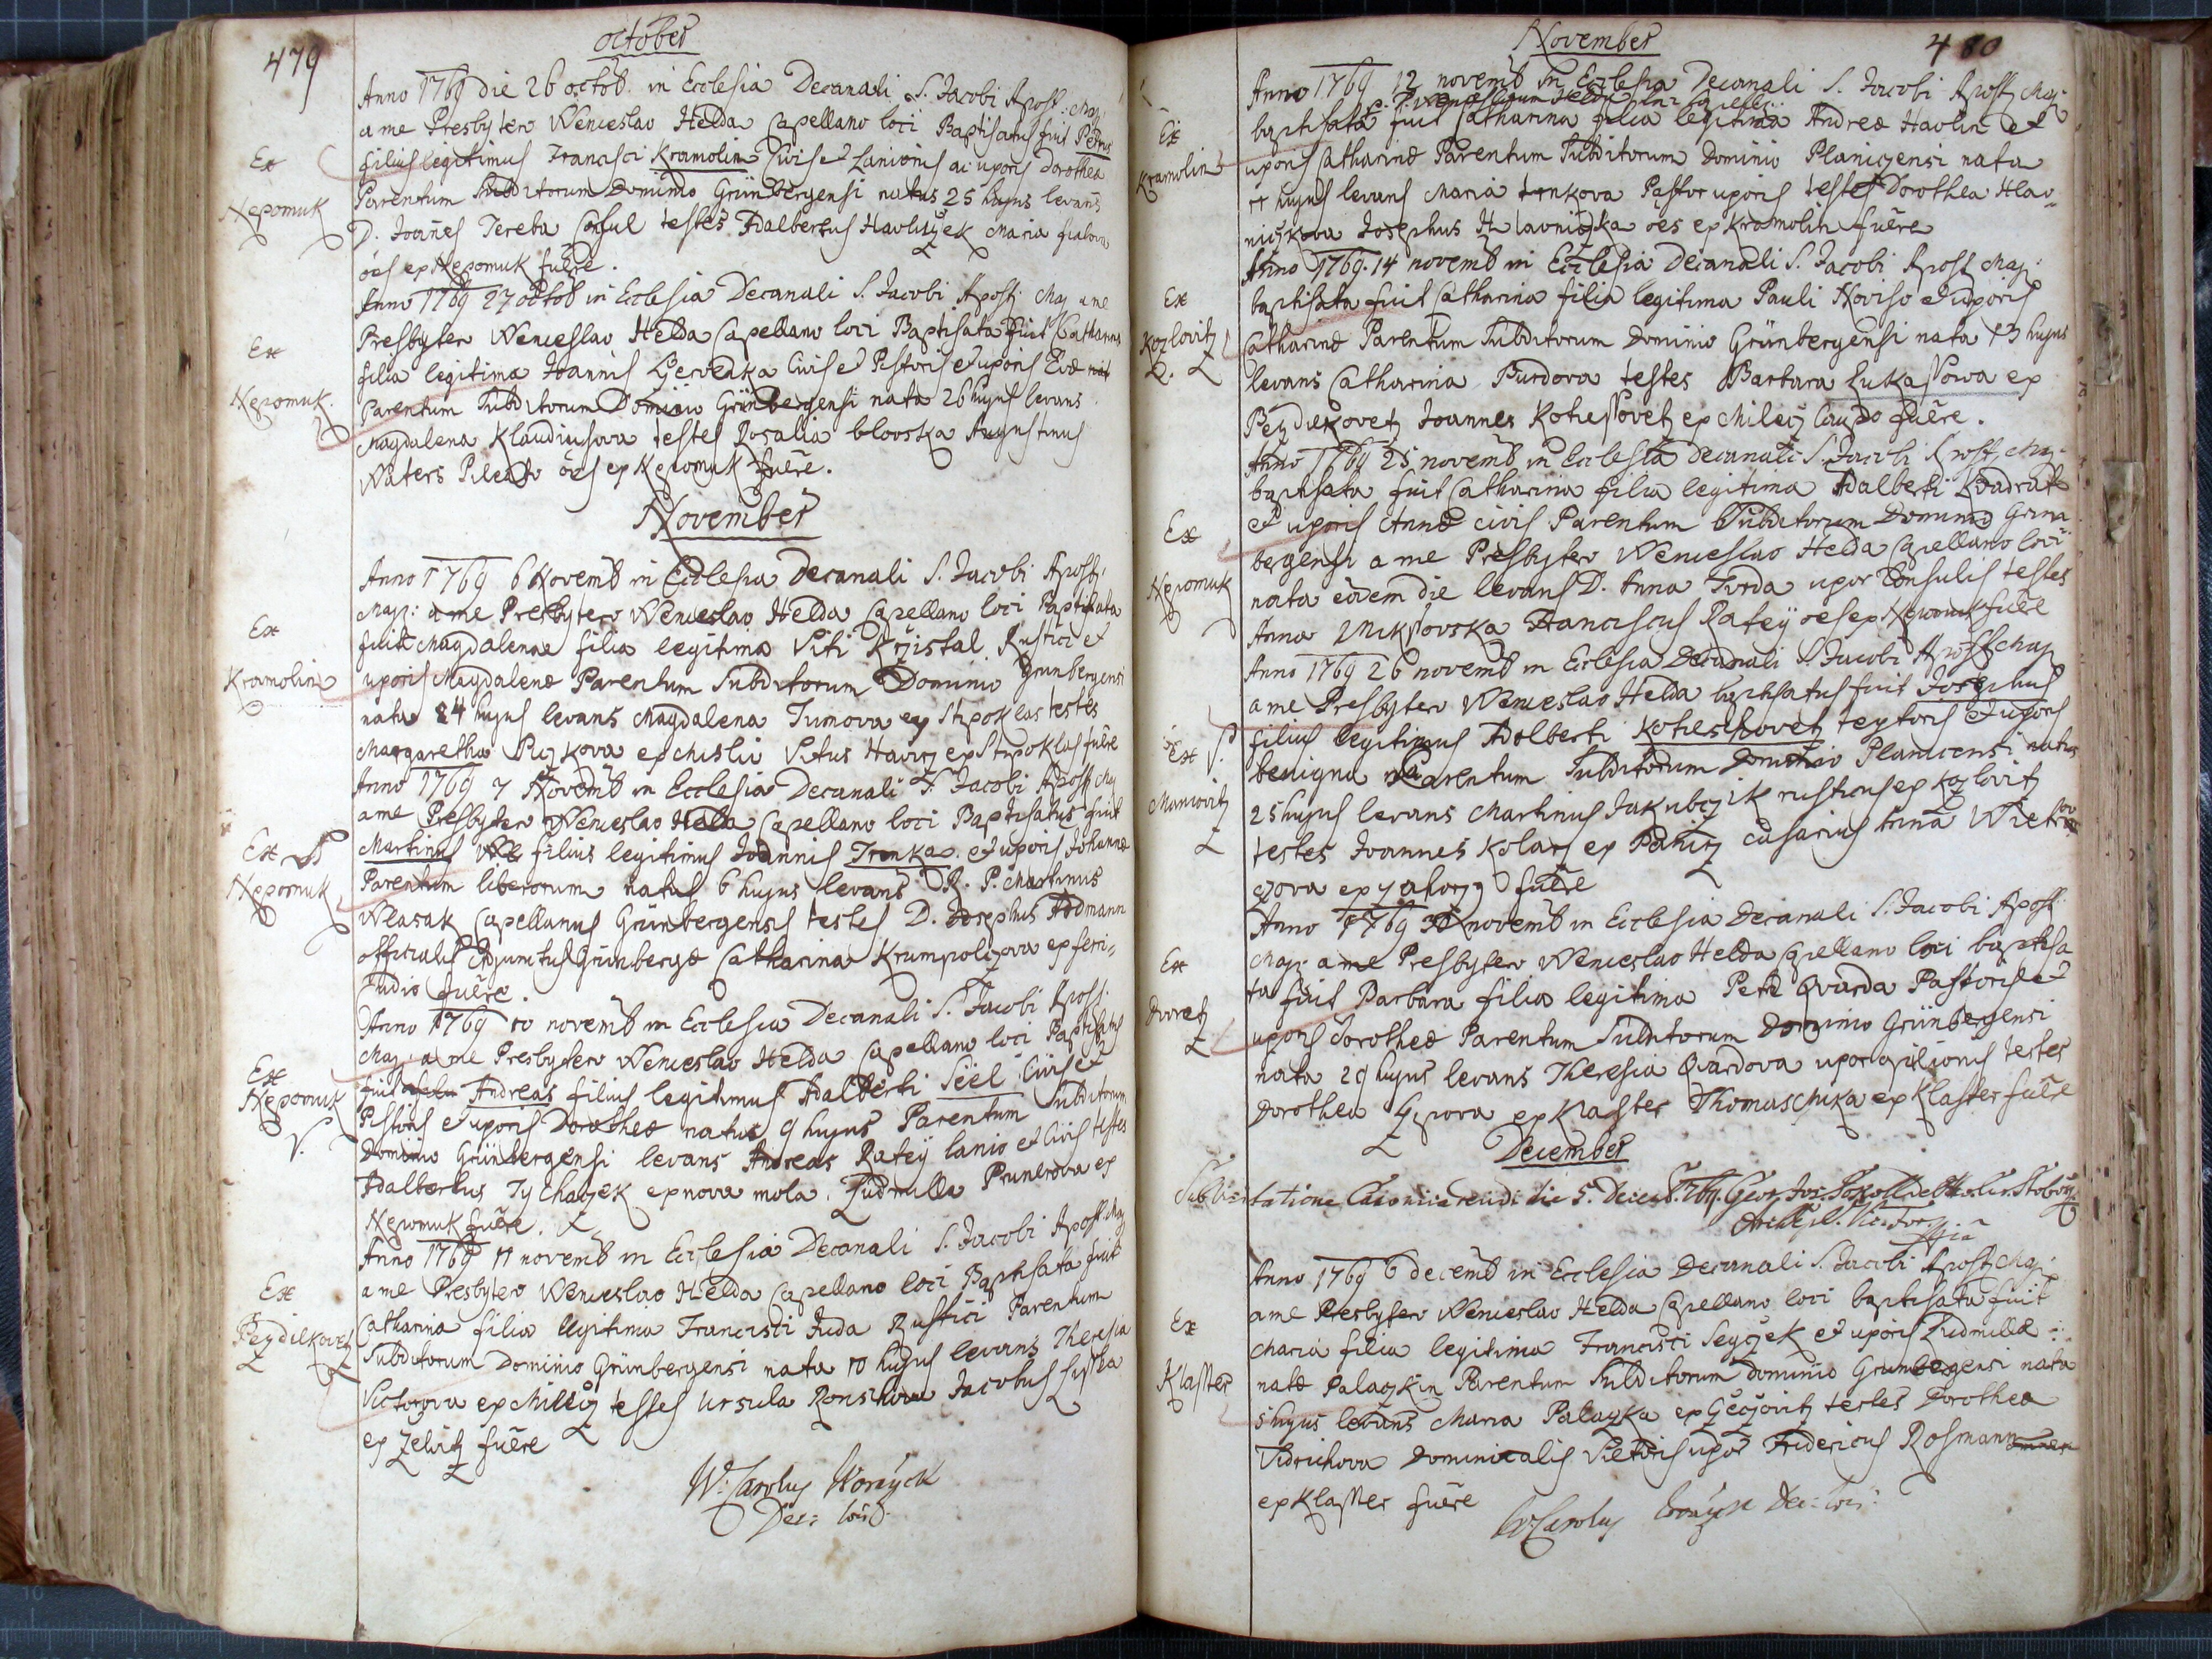 479
october
Anno 1769 die 26 octob. in Ecclesia Decanali S. Jacobi Apost. Maj.
a me Presbytero Wenceslao Helda Capellano loci Baptisatus fuit Petrus
Ex
filius legitimus Francisci Kramolin Civis et Lanionis ac uxoris Dorothea
Nepomuk
Parentum Subditorum Dominio Grünbergensi natus 25 hujus levans
D. Joañes Tereba Consul testes Adalbertus Havliczek Maria fialova
oēs ex Nepomuk fuēre.
Anno 1769 27 octob in Ecclesia Decanali S. Jacobi Apost. Maj a me
Ex
Presbytero Wenceslao Helda Capellano loci Baptisata fuit Catharina
filia legitima Joannis Czervenka Civis et Pistoris et uxoris Evæ
Nepomuk.
Parentum Subditorum Dominio Grünbergensi nata 26 hujus levans
Magdalena Klaudiusova testes Rosalia blovska Augustinus
Waters Pileato oēs ex Nepomuk fuēre.
November
Anno 1769 6 Novemb in Ecclesia Decanali S. Jacobi Apost.
Maj: a me Presbytero Wenceslao Helda Capellano loci Baptisata
Ex
fuit Magdalena filia legitima Viti Krzistal Rustici et
Kramolin
uxoris Magdalenæ Parentum Subditorum Dominio Grünbergensi
nata 4 hujus levans Magdalena Tumova ex Stipoklas testes
Margaretha Ruzkova ex Mislio Vitus Havirz ex Stipoklas fuēre
Anno 1769 7 Novemb in Ecclesia Decanali S. Jacobi Apost. Maj
a me Presbytero Wenceslao Helda Capellano loci Baptisatus fuit
Ex
Martinus filius legitimus Joannis Trnka et uxoris Johannæ
Nepomuk
Parentum liberorum natus 6 hujus levans R. P. Martinus
Wlasak Capellanus Grünbergensis testes D. Josephus Addmann
officialis Adjunctus Grünbergæ Catharina Krumpolczova ex feri=
Cudio fuēre.
Anno 1769 10 novemb in Ecclesia Decanali S. Jacobi Apost.
Maj. a me Presbytero Wenceslao Helda Capellano loci Baptisatus
Ex
fuit Andreas filius legitimus Adalberti Siël Civis et
Nepomuk
Pistoris et uxoris Dorotheæ natus 9 hujus Parentum Subditorum
V.
Dominio Grünbergensi levans Andreas Ratey lanio et Civis testes
Adalbertus Tychaczek ex nova mola. Ludmilla Prunerova ex
Nepomuk fuēre.
Anno 1769 11 novemb in Ecclesia Decanali S. Jacobi Apost. Maj
a me Presbytero Wenceslao Helda Capellano loci Baptisata fuit
Ex
Catharina filia legitima Francisci Juda Rustici Parentum
Peydilkovetz
Subditorum Dominio Grünbergensi nata 10 hujus levans Theresia
Victorova ex Milecz testes Ursula Ronshova Jacobus
ex Zelvitz fuēre
W: Carolus Worayck
Dec: loci
November
480
Anno 1769 12 novemb in Ecclesia Decanali S. Jacobi Apost. Maj.
a P. Wenceslaum Helda
Ex
baptisata fuit Catharina filia legitima Andreæ Havlin et
Kramolin
uxoris Catharinæ Parentum Subditorum Dominio Planicensi nata
11 hujus levans Maria trnkova Pastor uxoris testes Dorothea Hlav=
niczkova Josephus Hlavniczka oes ex Kramolin fuēre
Anno 1769. 14 novemb in Ecclesia Decanali S. Jacobi Apost. Maj.
Ex
baptisata fuit Catharina filia legitima Pauli Noviso et uxoris
Kozlovitz
Catharinæ Parentum Subditorum Dominio Grünbergensi nata 13 hujus
levans Catharina Burdova testes Barbara Lukassowa ex
Peydilkovetz Joannes Kotiessovetz ex Milecz Caupo fuēre.
Anno 1769 25 novemb in Ecclesia Decanali S. Jacobi Apost. Maj.
baptisata fuit Catharina filia legitima Adalberti Kvadrat
Ex
et uxoris Annæ civis Parentum Subditorum Dominio Grün
bergensi a me Presbytero Wenceslao Helda Capellano loci
Nepomuk
nata eodem die levans D. Anna Turda uxor Consulis testes
Anna Mikssovska Franciscus Ratey oes ex Nepomuk fuēre
Anno 1769 26 novemb in Ecclesia Decanali S. Jacobi Apost Maj
a me Presbytero Wenceslao Helda baptisatus fuit Josephus
Ex V.
filius legitimus Adalberti Kotieschovetz textoris et uxoris
Maniovitz
benigna Parentum Subditorum Dominio Planicensi natus
25 hujus levans Martinus Jakubczik rusticus ex Kozlovitz
testes Joannes Kolarz ex Pahitz casarius Anna Wietro
czova ex zahorz fuēre
Anno 1769 30 novemb in Ecclesia Decanali S. Jacobi Apost.
Ex
Maj. a me Presbytero Wenceslao Helda Capellano loci baptisa
ta fuit Barbara filia legitima Petri Qvarda Pastoris et
Dvoretz
uxoris Dorotheæ Parentum Subditorum Dominio Grünbergensi
nata 29 hujus levans Theresia Qvardova uxor opilionis testes
Dorothea Czizova ex Klaster Thomaschka ex Klaster fuēre
December
Sub Visitatione Canonica vidi die 5. Decemb. 769. Geor. Jos.
Anno 1769 6 decemb in Ecclesia Decanali S. Jacobi Apost. Maj.
a me Presbytero Wenceslao Helda Capellano loci baptisata fuit
Ex
Maria filia legitima Francisci Seyczek et uxoris Ludmillæ
Klaster
natæ Palaczkin Parentum Subditorum Dominio Grunbergensi nata
5 hujus levans Maria Palaczka ex Czeczovitz testes Dorothea
Vidrichova Dominicalis Vietoris uxor Fridericus Rosmann
ex Klaster fuēre
W: Carolus Worayck Dec: loci: